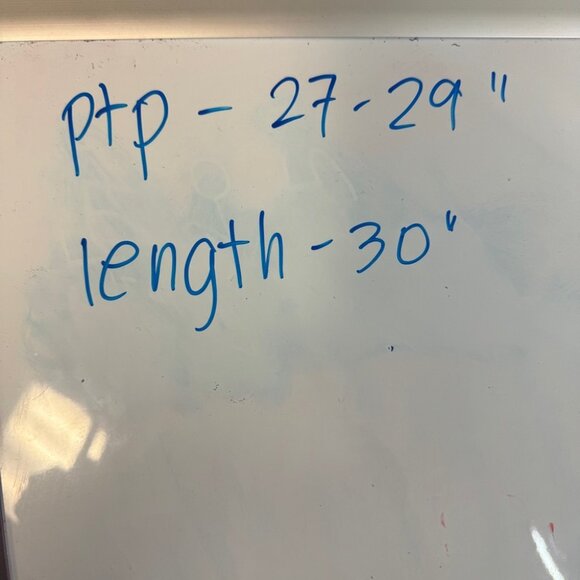 ptp - 27-29"
length - 30"